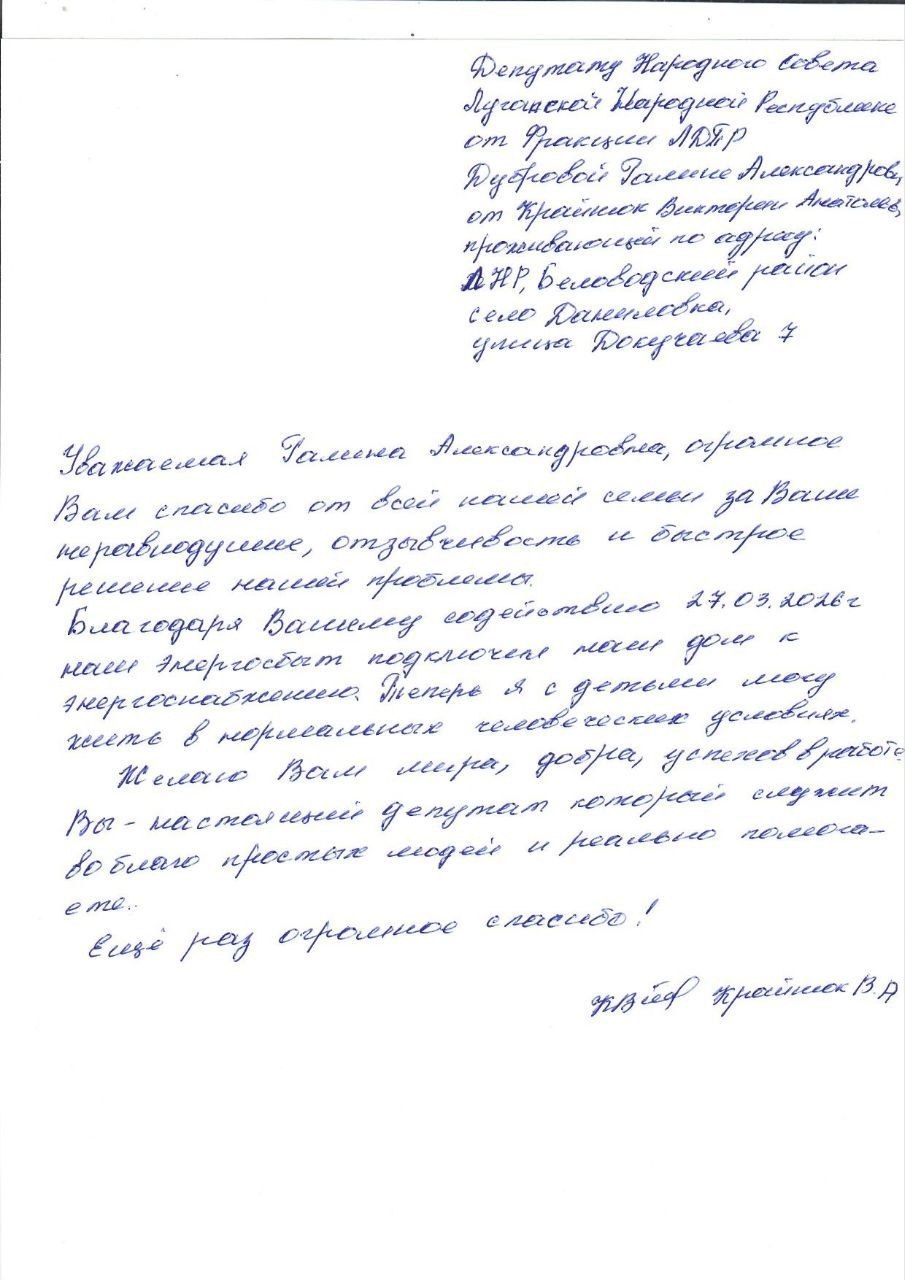 Депутату Народного Совета
Луганской Народной Республике
от Фракции ЛДПР
Дубровой Галине Александровн,
от Крайнюк Виктории Анатолев,
проживающей по адресу:
ЛНР, Беловодский район
село Даниловка,
улица Докучаева 7
Уважаемая Галина Александровна, огромное
Вам спасибо от всей нашей семьи за Ваши
неравнодушие, отзывчивость и быстрое
решение нашей проблемы.
Благодаря Вашему содействию 27.03.2026г
наш энергосбыт подключен наш дом к
энергоснабжению. Теперь я с детьми могу
жить в нормальных человеческих условиях.
Желаю Вам мира, добра, успехов в работе.
Вы - настоящий депутат который служит
во благо простых людей и реально помога-
ете.
Ещё раз огромное спасибо!
Крайнюк В.А